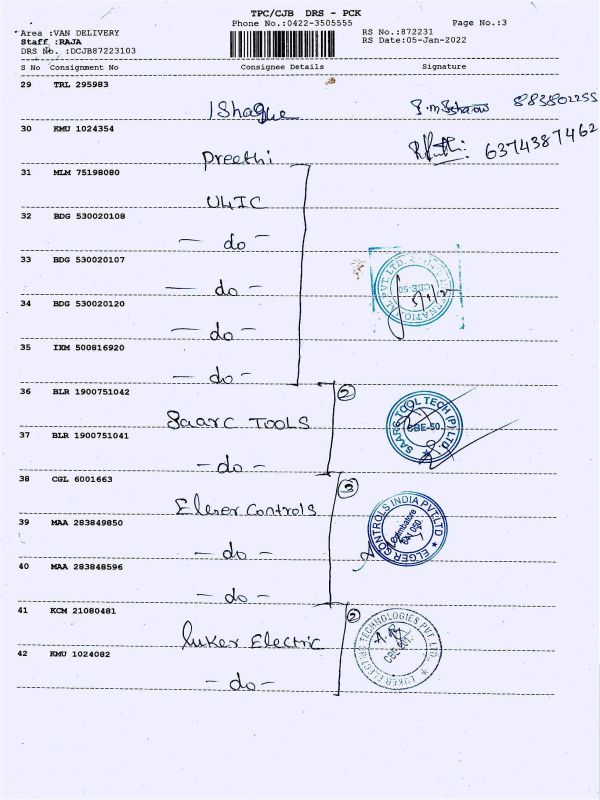 TPC/CJB DRS - PCK
Phone No.:0422-3505555
Page No.:3
Area :VAN DELIVERY
RS No.:872231
Staff :RAJA
RS Date:05-Jan-2022
DRS No. :DCJB87223103
S No Consignment No Consignee Details Signature
29 TRL 295983
Ishaque 883802255
30 KMU 1024354
Preethi 6374387462
31 MLM 75198080
ULIC
32 BDG 530020108
- do -
33 BDG 530020107
- do -
34 BDG 530020120
- do -
35 IXM 500816920
- do -
CBE-50
36 BLR 1900751042 2
Saarc TOOLS
SAARC TOOL TECH (P) LTD.
CBE-50.
37 BLR 1900751041
- do -
38 CGL 6001663 3
Elger Controls
ELGER CONTROLS INDIA PVT.LTD
Coimbatore
641 050.
39 MAA 283849850
- do -
40 MAA 283848596
- do -
41 KCM 21080481 2
Luker Electric
LUKER ELECTRIC TECHNOLOGIES PVT. LTD.
42 KMU 1024082
- do -